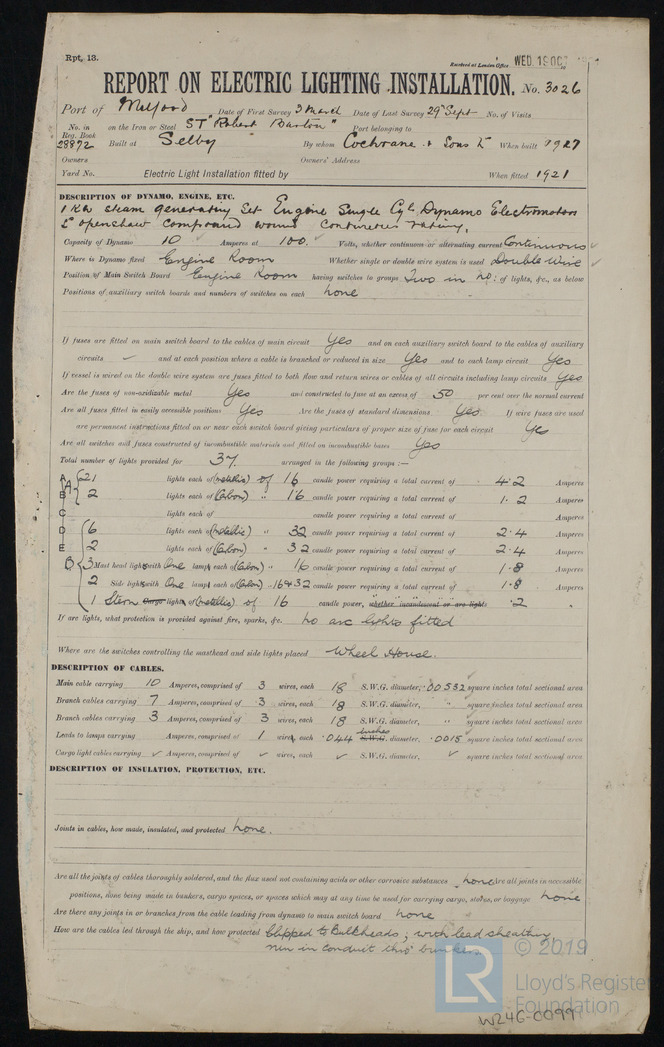 Rpt. 13.
Received at London Office WED. 19 OCT
REPORT ON ELECTRIC LIGHTING INSTALLATION. No. 3026
Port of Milford Date of First Survey 3 March Date of Last Survey 29th Sept No. of Visits
No. in Reg. Book on the Iron or Steel ST "Robert Barton" Port belonging to
28872 Built at Selby By whom Cochrane & Sons Ld When built 1917
Owners Owners' Address
Yard No. Electric Light Installation fitted by When fitted 1921
DESCRIPTION OF DYNAMO, ENGINE, ETC.
1 KW steam generating Set Engine Single Cyl. Dynamo Electromotors
Ld Openshaw Compound wound Continuous rating.
Capacity of Dynamo 10 Amperes at 100 Volts, whether continuous or alternating current Continuous
Where is Dynamo fixed Engine Room Whether single or double wire system is used Double Wire
Position of Main Switch Board Engine Room having switches to groups Two in No: of lights, &c., as below
Positions of auxiliary switch boards and numbers of switches on each none
If fuses are fitted on main switch board to the cables of main circuit Yes and on each auxiliary switch board to the cables of auxiliary
circuits ✓ and at each position where a cable is branched or reduced in size Yes and to each lamp circuit Yes
If vessel is wired on the double wire system are fuses fitted to both flow and return wires or cables of all circuits including lamp circuits Yes
Are the fuses of non-oxidizable metal Yes and constructed to fuse at an excess of 50 per cent over the normal current
Are all fuses fitted in easily accessible positions Yes Are the fuses of standard dimensions Yes. If wire fuses are used
are permanent instructions fitted on or near each switch board giving particulars of proper size of fuse for each circuit Yes
Are all switches and fuses constructed of incombustible materials and fitted on incombustible bases Yes
Total number of lights provided for 37. arranged in the following groups :—
A 21 lights each of (metallic) of 16 candle power requiring a total current of 4.2 Amperes
B 2 lights each of (Carbon) " 16 candle power requiring a total current of 1.2 Amperes
C lights each of candle power requiring a total current of Amperes
D 6 lights each of (metallic) " 32 candle power requiring a total current of 2.4 Amperes
E 2 lights each of (Carbon) " 32 candle power requiring a total current of 2.4 Amperes
B 3 Mast head lights with One lamp each of (Carbon) " 16 candle power requiring a total current of 1.8 Amperes
2 Side lights with One lamp each of (Carbon) " 16 & 32 candle power requiring a total current of 1.8 Amperes
1 Stern Cargo lights of (metallic) of 16 candle power, whether incandescent or arc lights .2 "
If arc lights, what protection is provided against fire, sparks, &c. no arc lights fitted
Where are the switches controlling the masthead and side lights placed Wheel House.
DESCRIPTION OF CABLES.
Main cable carrying 10 Amperes, comprised of 3 wires, each 18 S.W.G. diameter, .00532 square inches total sectional area
Branch cables carrying 7 Amperes, comprised of 3 wires, each 18 S.W.G. diameter, " square inches total sectional area
Branch cables carrying 3 Amperes, comprised of 3 wires, each 18 S.W.G. diameter, " square inches total sectional area
Leads to lamps carrying Amperes, comprised of 1 wires, each .044 inches S.W.G. diameter, .0015 square inches total sectional area
Cargo light cables carrying ✓ Amperes, comprised of ✓ wires, each ✓ S.W.G. diameter, ✓ square inches total sectional area
DESCRIPTION OF INSULATION, PROTECTION, ETC.
Joints in cables, how made, insulated, and protected none.
Are all the joints of cables thoroughly soldered, and the flux used not containing acids or other corrosive substances none Are all joints in accessible
positions, none being made in bunkers, cargo spaces, or spaces which may at any time be used for carrying cargo, stores, or baggage none
Are there any joints in or branches from the cable leading from dynamo to main switch board none
How are the cables led through the ship, and how protected Clipped to Bulkheads; with lead sheathing
run in conduit thro' bunkers
LR © 2019
Lloyd's Register
Foundation
W246-0099